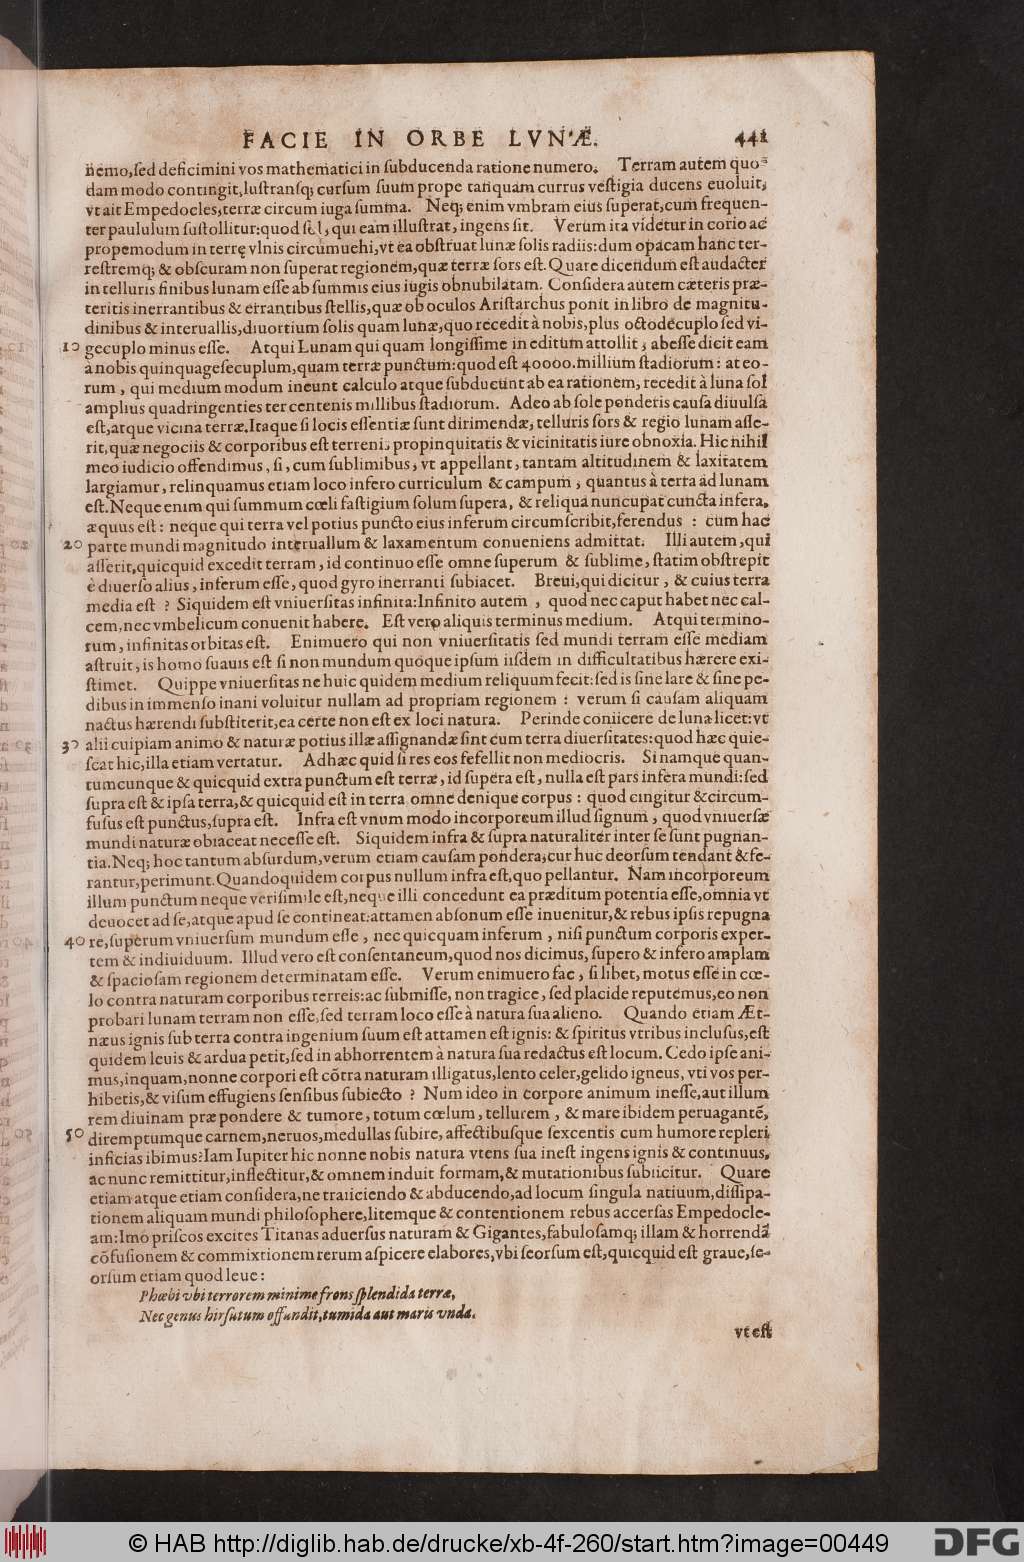 FACIE IN ORBE LVNÆ. 441
nemo,sed deficimini vos mathematici in subducenda ratione numero. Terram autem quo-
dam modo contingit,lustransq; cursum suum prope tanquam currus vestigia ducens euoluit,
vt ait Empedocles,terræ circum iuga summa. Neq; enim vmbram eius superat,cum frequen-
ter paululum sustollitur:quod sol, qui eam illustrat, ingens sit. Verum ita videtur in corio ac
propemodum in terrę vlnis circumuehi,vt ea obstruat lunæ solis radiis:dum opacam hanc ter-
restremq; & obscuram non superat regionem,quæ terræ sors est. Quare dicendum est audacter
in telluris finibus lunam esse ab summis eius iugis obnubilatam. Considera autem cæteris præ-
teritis inerrantibus & errantibus stellis,quæ ob oculos Aristarchus ponit in libro de magnitu-
dinibus & interuallis,diuortium solis quam lunæ,quo recedit à nobis,plus octodecuplo sed vi-
10 gecuplo minus esse. Atqui Lunam qui quam longissime in editum attollit, abesse dicit eam
à nobis quinquagesecuplum,quam terræ punctum:quod est 40000.millium stadiorum: at eo-
rum, qui medium modum ineunt calculo atque subducunt ab ea rationem, recedit à luna sol
amplius quadringenties ter centenis millibus stadiorum. Adeo ab sole ponderis causa diuulsa
est,atque vicina terræ.Itaque si locis essentiæ sunt dirimendæ, telluris sors & regio lunam asse-
rit,quæ negociis & corporibus est terrenis propinquitatis & vicinitatis iure obnoxia. Hic nihil
meo iudicio offendimus, si, cum sublimibus, vt appellant, tantam altitudinem & laxitatem
largiamur, relinquamus etiam loco infero curriculum & campum, quantus à terra ad lunam
est.Neque enim qui summum cœli fastigium solum supera, & reliqua nuncupat cuncta infera,
æquus est: neque qui terra vel potius puncto eius inferum circumscribit,ferendus : cum hac
20 parte mundi magnitudo interuallum & laxamentum conueniens admittat. Illi autem,qui
asserit,quicquid excedit terram, id continuo esse omne superum & sublime, statim obstrepit
è diuerso alius, inferum esse, quod gyro inerranti subiacet. Breui,qui dicitur, & cuius terra
media est ? Siquidem est vniuersitas infinita:Infinito autem , quod nec caput habet nec cal-
cem,nec vmbelicum conuenit habere. Est vero aliquis terminus medium. Atqui termino-
rum, infinitas orbitas est. Enimuero qui non vniuersitatis sed mundi terram esse mediam
astruit, is homo suauis est si non mundum quoque ipsum iisdem in difficultatibus hærere exi-
stimet. Quippe vniuersitas ne huic quidem medium reliquum fecit:sed is sine lare & sine pe-
dibus in immenso inani voluitur nullam ad propriam regionem : verum si causam aliquam
nactus hærendi substiterit,ea certe non est ex loci natura. Perinde coniicere de luna licet:vt
30 alii cuipiam animo & naturæ potius illæ assignandæ sint cum terra diuersitates:quod hæc quie-
scat hic,illa etiam vertatur. Adhæc quid si res eos fefellit non mediocris. Si namque quan-
tumcunque & quicquid extra punctum est terræ, id supera est, nulla est pars infera mundi:sed
supra est & ipsa terra,& quicquid est in terra omne denique corpus : quod cingitur & circum-
fusus est punctus,supra est. Infra est vnum modo incorporeum illud signum, quod vniuersæ
mundi naturæ obiaceat necesse est. Siquidem infra & supra naturaliter inter se sunt pugnan-
tia.Neq; hoc tantum absurdum,verum etiam causam pondera,cur huc deorsum tendant & fe-
rantur,perimunt.Quandoquidem corpus nullum infra est,quo pellantur. Nam incorporeum
illum punctum neque verisimile est,neque illi concedunt ea præditum potentia esse,omnia vt
deuocet ad se,atque apud se contineat:attamen absonum esse inuenitur,& rebus ipsis repugna
40 re,superum vniuersum mundum esse, nec quicquam inferum, nisi punctum corporis exper-
tem & indiuiduum. Illud vero est consentaneum,quod nos dicimus, supero & infero amplam
& spaciosam regionem determinatam esse. Verum enimuero fac, si libet, motus esse in cœ-
lo contra naturam corporibus terreis:ac submisse, non tragice, sed placide reputemus,eo non
probari lunam terram non esse,sed terram loco esse à natura sua alieno. Quando etiam Æt-
næus ignis sub terra contra ingenium suum est attamen est ignis: & spiritus vtribus inclusus,est
quidem leuis & ardua petit,sed in abhorrentem à natura sua redactus est locum. Cedo ipse ani-
mus,inquam,nonne corpori est cõtra naturam illigatus,lento celer,gelido igneus, vti vos per-
hibetis,& visum effugiens sensibus subiecto ? Num ideo in corpore animum inesse,aut illum
rem diuinam præ pondere & tumore, totum cœlum, tellurem , & mare ibidem peruagantẽ,
50 diremptumque carnem,neruos,medullas subire, affectibusque sexcentis cum humore repleri
inficias ibimus?Iam Iupiter hic nonne nobis natura vtens sua inest ingens ignis & continuus,
ac nunc remittitur,inflectitur,& omnem induit formam,& mutationibus subiicitur. Quare
etiam atque etiam considera,ne traiiciendo & abducendo,ad locum singula natiuum,dissipa-
tionem aliquam mundi philosophere,litemque & contentionem rebus accersas Empedocle-
am:Imo priscos excites Titanas aduersus naturam & Gigantes,fabulosamq; illam & horrendã
cõfusionem & commixtionem rerum aspicere elabores,vbi seorsum est,quicquid est graue,se-
orsum etiam quod leue:
Phœbi vbi terrorem minime frons splendida terræ,
Nec genus hirsutum offundit,tumida aut maris vnda.
vt est
© HAB http://diglib.hab.de/drucke/xb-4f-260/start.htm?image=00449
DFG